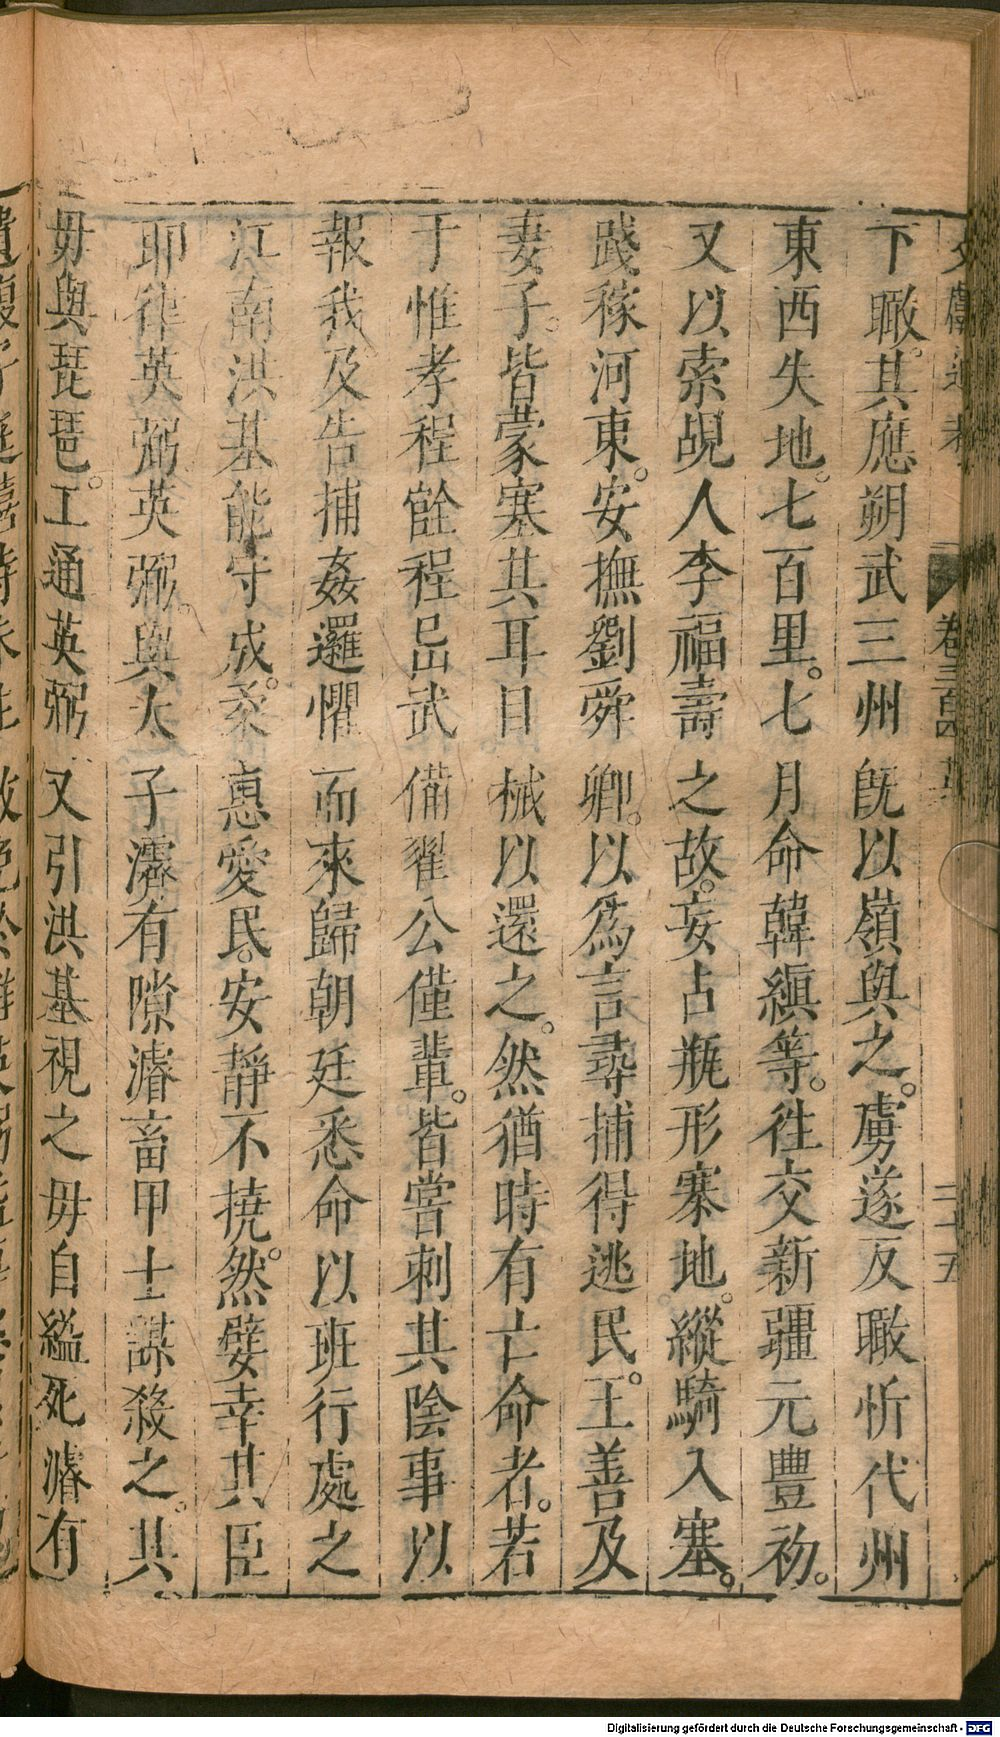 下瞰其應朔武三州旣以嶺與之虜遂反瞰忻代州
東西失地七百里七月命韓縝等徃交新疆元豐初
又以索覘人李福壽之故妄占瓶形寨地縱騎入塞
踐稼河東安撫劉舜卿以爲言尋捕得逃民王善及
妻子皆蒙塞其耳目械以還之然猶時有亡命者若
于惟孝程銓程岊武備翟公僅輩皆嘗刺其陰事以
報我及告捕姦邏懼而來歸朝廷悉命以班行處之
江南洪基能守成柔惠愛民安靜不撓然嬖幸其臣
耶律英弼英弼與太子濬有隙濬畜甲士謀殺之其
毋與琵琶工通英弼又引洪基視之毋自縊死濬有
文獻通考
卷三百四
二十五
Digitalisierung gefördert durch die Deutsche Forschungsgemeinschaft - DFG